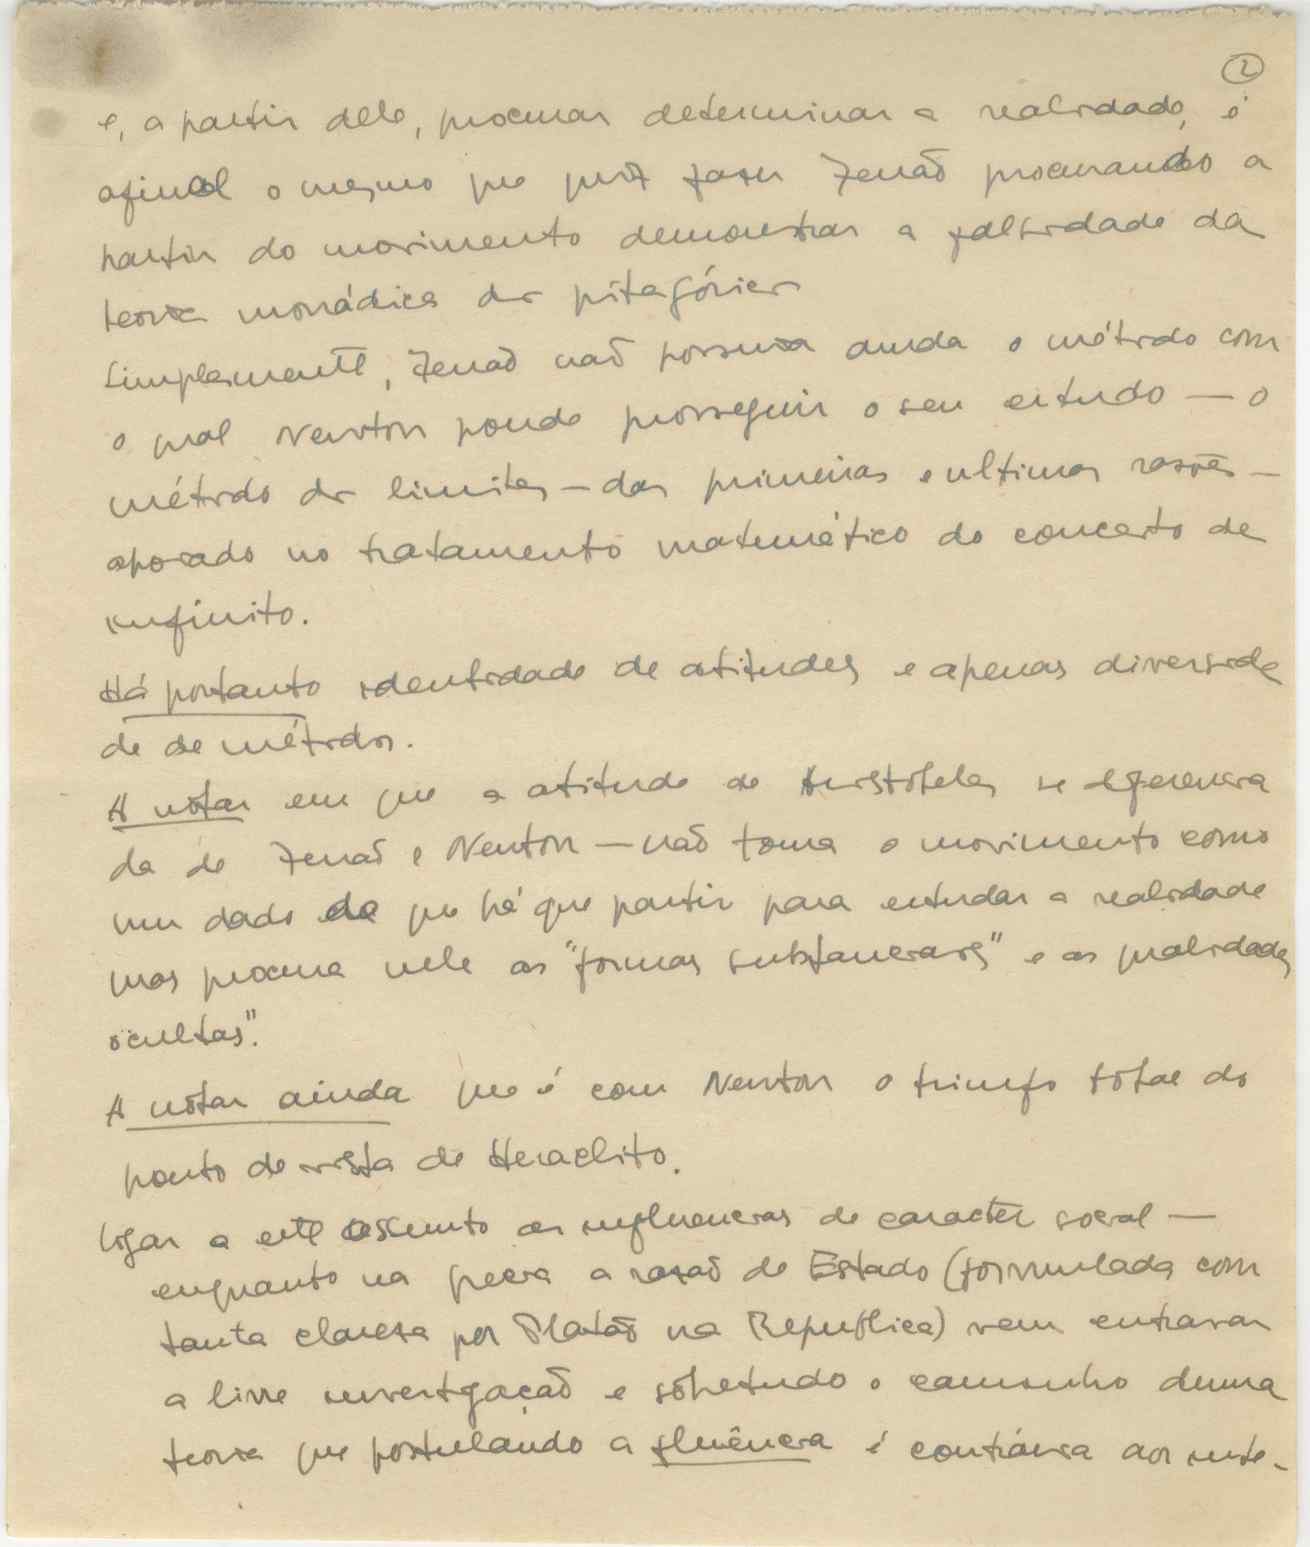 2
e, a partir dele, procurar determinar a realidade, é
afinal o mesmo que quiz fazer Zenão procurando a
partir do movimento demonstrar a falsidade da
teoria monádica dos pitagóricos
Simplesmente, Zenão não possuia ainda o método com
o qual Newton poude prosseguir o seu estudo — o
método dos limites — das primeiras e ultimas razões —
apoiado no tratamento matemático do conceito de
infinito.
Há portanto identidade de atitudes e apenas diversida
de de métodos.
A notar em que a atitude de Aristóteles se diferencia
da de Zenão e Newton — não toma o movimento como
um dado de que há que partir para estudar a realidade
mas procura nele as "formas substanciais" e as qualidades
ocultas".
A notar ainda que é com Newton o triunfo total do
ponto de vista de Heraclito.
Ligar a este assunto as influencias de caracter social —
enquanto na Grecia a razão de Estado (formulada com
tanta clareza por Platão na Republica) vem entravar
a livre investigação e sobretudo o caminho duma
teoria que postulando a fluência é contrária aos inte-